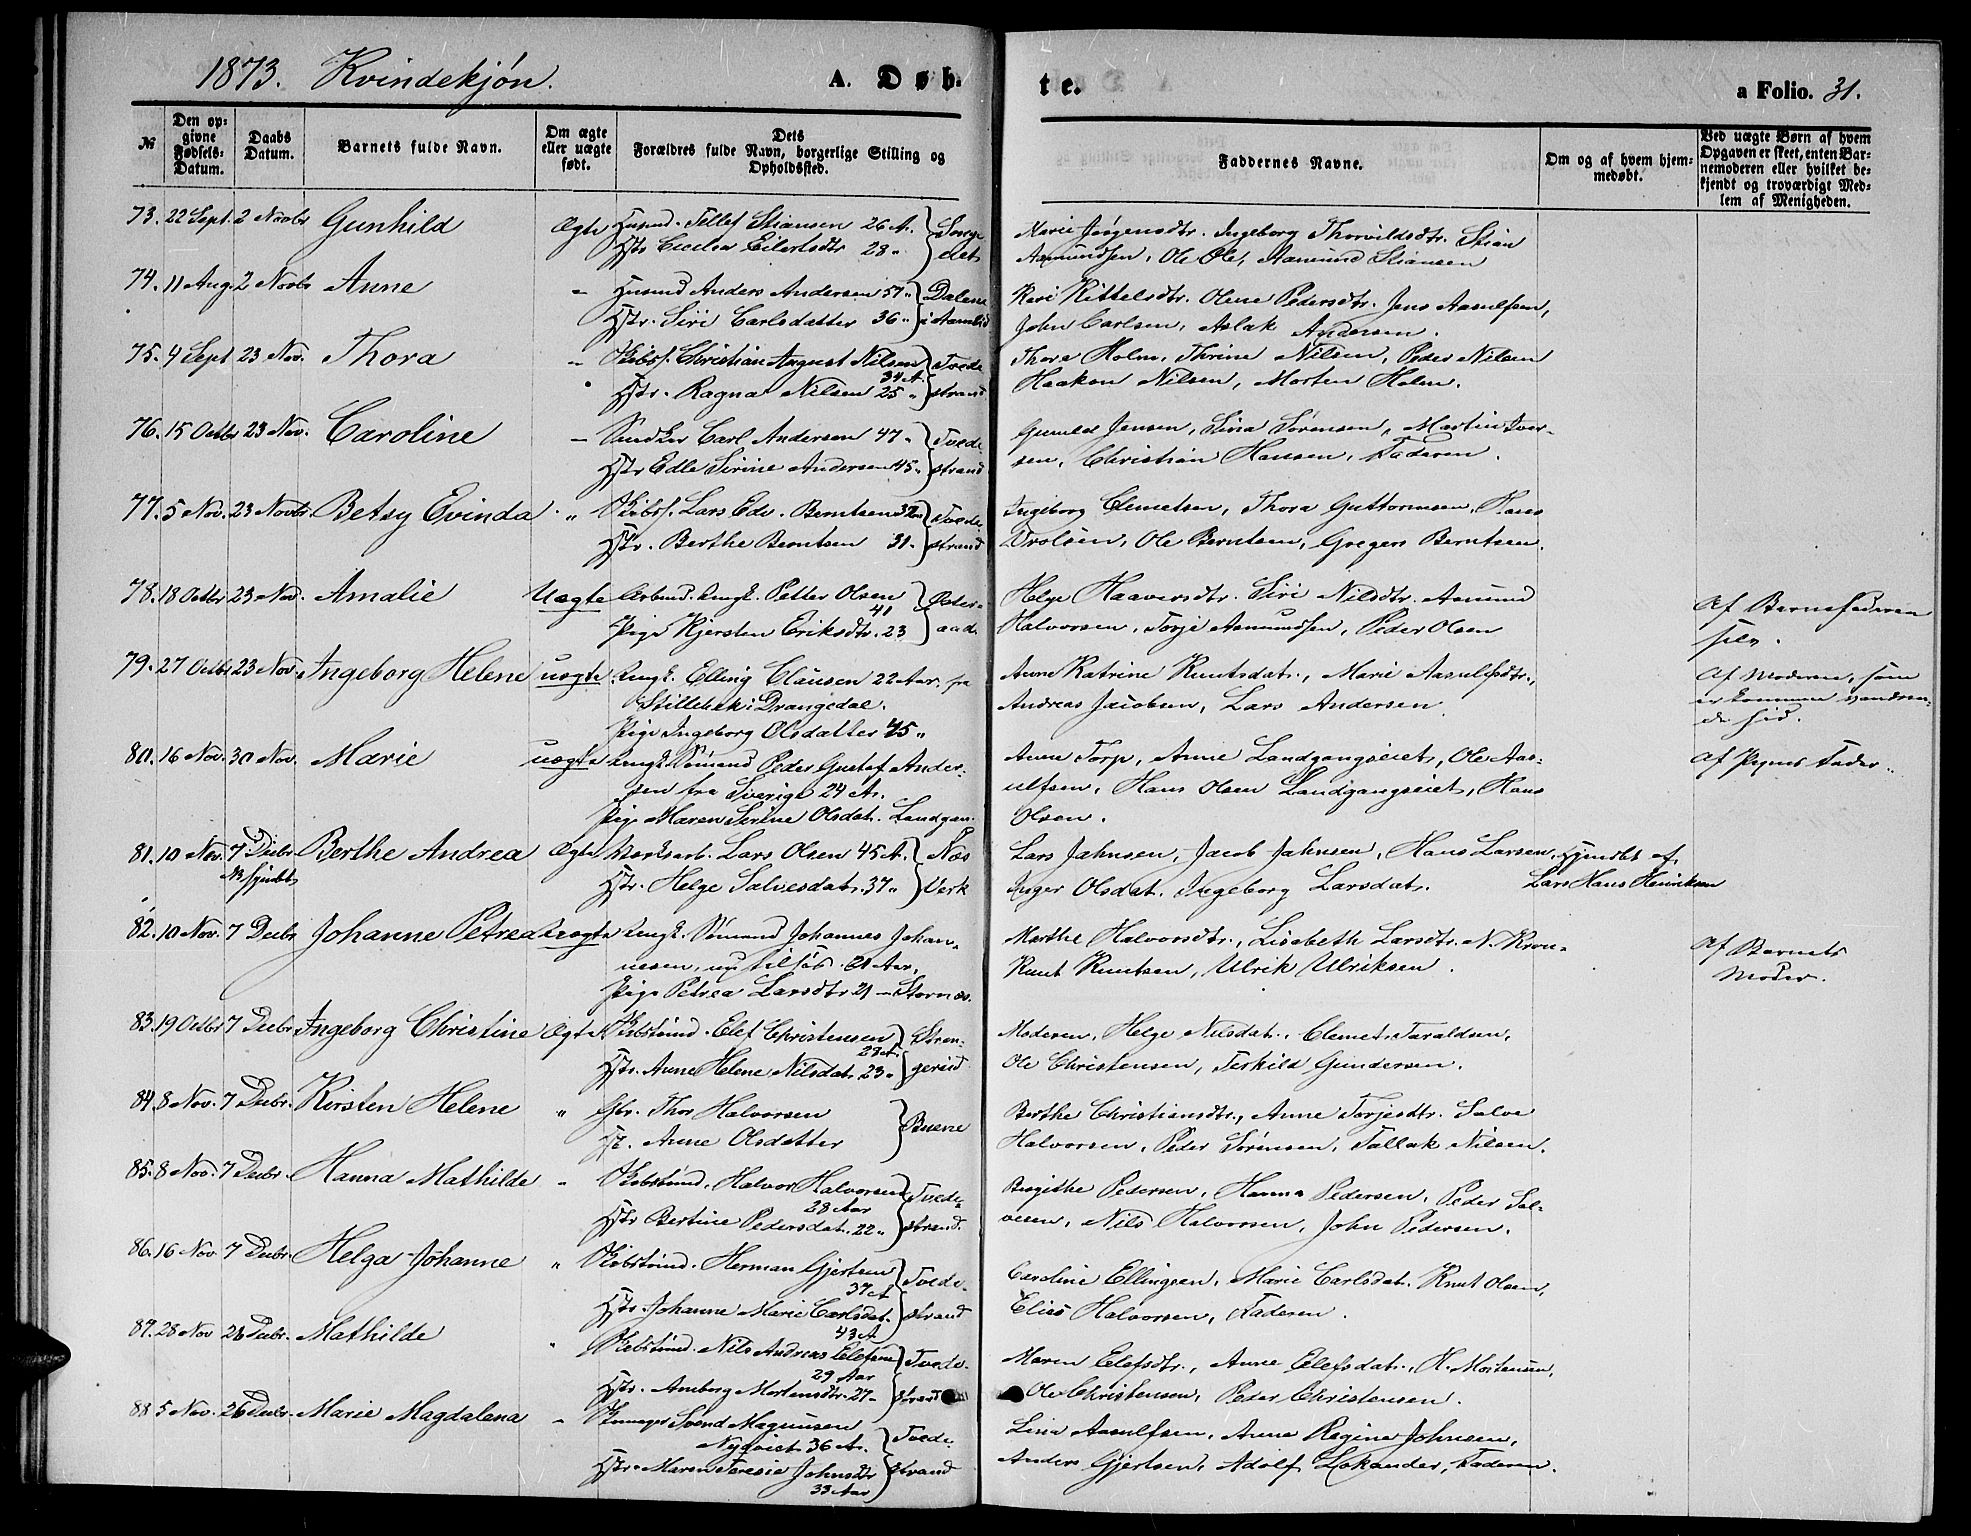 1873. Kvindekjøn.
A. Døb-
te.
a Folio. 31.
№
Den op-
givne
Fødsels-
Datum.
Daabs
Datum.
Barnets fulde Navn.
Om ægte
eller uægte
født.
Dets
Forældres fulde Navn, borgerlige Stilling og
Opholdssted.
Faddernes Navne.
Om og af hvem hjem-
medøbt.
Ved uægte Børn af hvem
Opgaven er skeet, enten Bar-
nemoderen eller hvilket be-
kjendt og troværdigt Med-
lem af Menigheden.
73. 22 Sept. 2 Novbr Gunhild Ægte Husmd. Tellef Stiansen 26 A.
Hstr Cecilia Eilertsdtr 28 "
Marie Jørgensdtr. Ingeborg Thorvildsdtr. Stian
Asmundsen, Ole Ols, Aanund Stiansen
74. 11 Aug. 2 Novbr Anne " Husmd Anders Andersen 57 " Dalene
Hstr. Siri Carlsdatter 36 "
Kari Kittelsdtr. Olene Pedersdtr. Jens Aasulfsen,
John Carlsen, Aslak Andersen.
75. 4 Sept 23 Nov. Thora " Skibsf. Christian August Nilsen Tvede-
34 A.
Hstr. Ragna Nilsen 25 " strand
Thora Holm, Thrine Nilsen, Peder Nilsen
Haakon Nilsen, Morten Holm.
76. 15 Octbr 23 Nov. Caroline " Snedker Carl Andersen 47 " Tvede-
Hstr Edle Sirine Andersen 45 " strand
Gunild Jensen, Sina Sørensen, Martin Iver-
sen, Christian Hansen, Faderen.
77. 5 Nov. 23 Novbr. Betsy Evinda " Skibsf. Lars Edv. Berntsen 32 Tvede-
Hstr. Berthe Berntsen 31 " strand
Ingeborg Clemetsen, Thora Guttormsen, Hans
Vrolsen, Ole Berntsen, Gregers Berntsen.
78. 18 Octbr 23 Nov. Amalie Uægte Arbmd. Ungk. Petter Olsen Øster-
41
Pige Kjersten Eriksdtr. 23 aad
Helge Haaversdtr. Siri Nilsdtr. Asmund
Halvorsen, Torje Asmundsen, Peder Olsen
Af Barnefaderen
selv.
79. 27 Octbr 23 Nov. Ingeborg Helene uægte Ungk. Elling Clausen 22 Aar. fra
Stillebek i Drangedal.
Pige Ingeborg Olsdatter 45 "
Anne Katrine Knutsdat., Marie Aasulfsdtr.,
Andreas Jacobsen, Lars Andersen
Af Moderen, som
er kommen vandren-
de hid.
80. 16 Nov. 30 Nov. Marie uægte Ungk. Sømand Peder Gustaf Ander-
sen fra Sverige 24 A.
Pige Maren Serine Olsdat. Landgan.
Anne Torp, Anne Landgangseiet, Ole Aas-
ulfsen, Hans Olsen Landgangseiet, Hans
Olsen.
Af Pigens Fader.
81. 10 Nov. 7 Decbr Berthe Andrea Ægte Værksarb. Lars Olsen 45 A. Næs
NB hjmdbt
Hstr. Helge Salvesdat. 37 " Verk
Lars Jahnsen, Jacob Jahnsen, Hans Larsen,
Inger Olsdat. Ingeborg Larsdat.
Hjmdbt af
Lars Hans Henriksen
82. 10 Nov. 7 Decbr Johanne Petrea Uægte Ungk. Sømand Johannes Johan-
nesen, nu tilsjøs. 21 Aar,
Pige Petrea Larsdtr 21 – Stornæs.
Marthe Halvorsdtr., Lisabeth Larsdtr. N. Kron-
Knut Knutsen, Ulrik Ulriksen.
Af Barnets
Moder.
83. 19 Octbr 7 Decbr Ingeborg Christine Ægte Skibstømd. Elef Christensen Stren-
28 A.
Hstr. Anne Helene Nilsdat. 23 " gereid
Moderen, Helge Nilsdat. Clemet Taraldsen,
Ole Christensen, Terkild Gundersen.
84. 8 Nov. 7 Decbr. Kirsten Helene " Gbr. Thor Halvorsen
H. Anne Olsdatter
Berthe Christiansdtr., Anne Torjesdtr. Salve
Halvorsen, Peder Sørensen, Tallak Nilsen.
85. 8 Nov. 7 Decbr. Hanna Mathilde " Skibstømd. Halvor Halvorsen Tvede-
28 Aar
Hstr Bertine Pedersdat. 22 " strand.
Birgithe Pedersen, Hanna Pedersen, Peder Sal-
vesen, Nils Halvorsen, John Pedersen.
86. 16 Nov 7 Decbr. Helga Johanne " Skibstømd. Herman Gjertsen Tvede-
37 A
Hstr. Johanne Marie Carlsdat. strand
43 A
Caroline Ellingsen, Marie Carlsdat. Knut Olsen,
Elias Halvorsen, Faderen.
87. 28 Nov 26 Decbr. Mathilde " Skibstømd. Nils Andreas Elefsen Tvede-
29 Aar
Hstr. Amborg Mortensdtr. 27 – strand
Maren Elefsdtr., Anne Elefsdat., H. Mortensen,
Ole Christensen, Peder Christensen.
88. 5 Nov. 26 Decbr. Marie Magdalena " Svend Magnusen
Nyqvist 36 A. Tvede-
Hstr. Maren Teresie Johnsdtr strand
33 Aar
Lina Aasulfsen, Anna Regine Johnsen,
Anders Gjertsen, Adolf Lokander, Faderen.